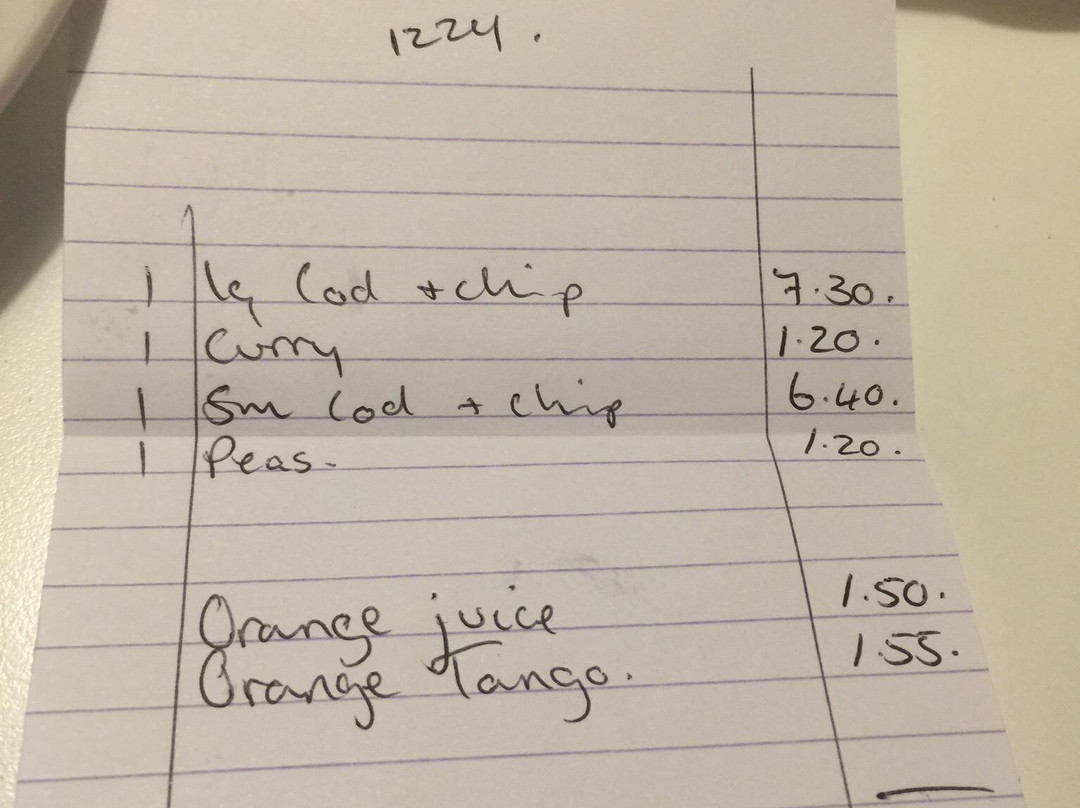 1224.
1 lg Cod + chip 7.30.
1 Curry 1.20.
1 Sm Cod + chip 6.40.
1 Peas. 1.20.
Orange juice 1.50.
Orange Tango. 1.55.